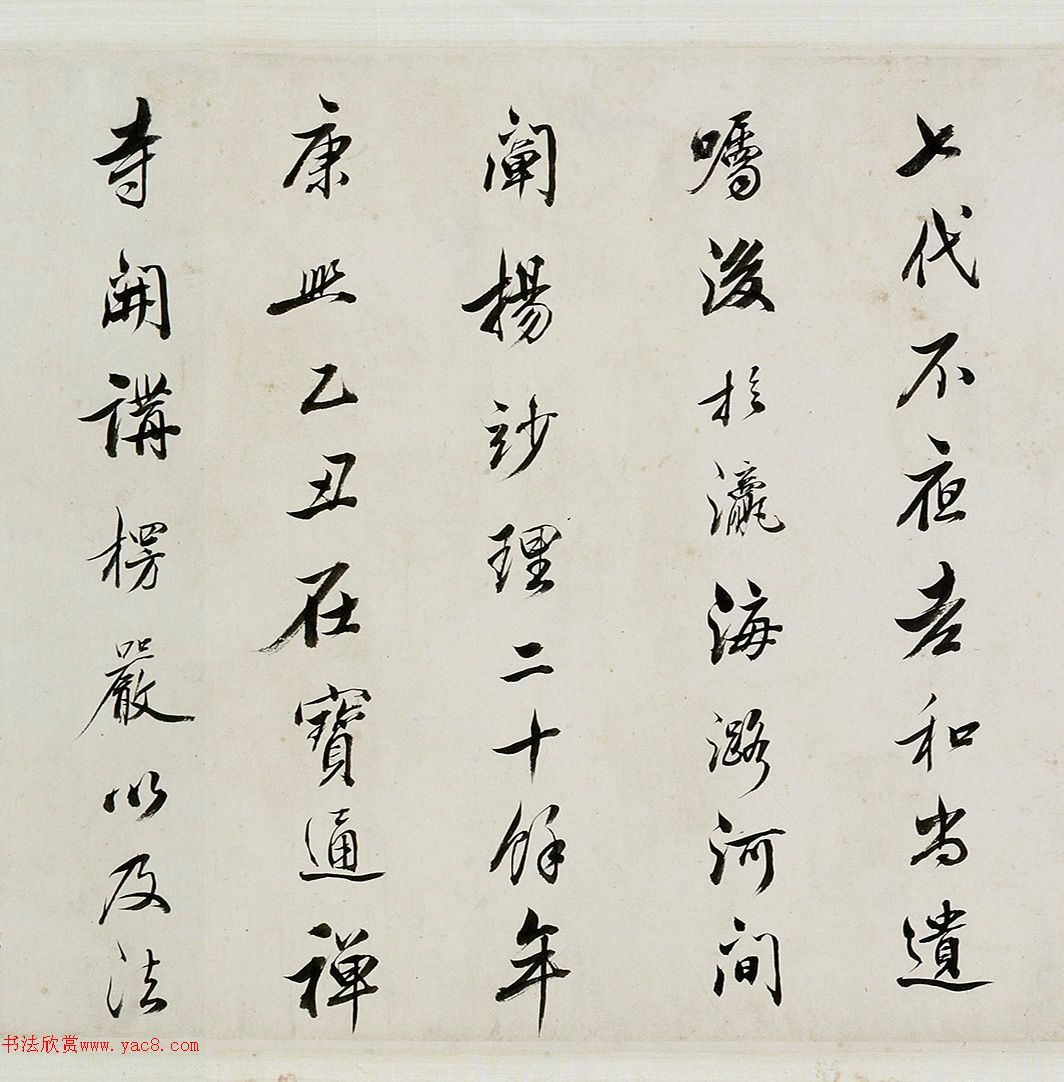 七代不夜老和尚遺
囑後於瀛海潞河間
闡揚玅理二十餘年
康熙乙丑在寶通禪
寺開講楞嚴以及法
书法欣赏www.yac8.com